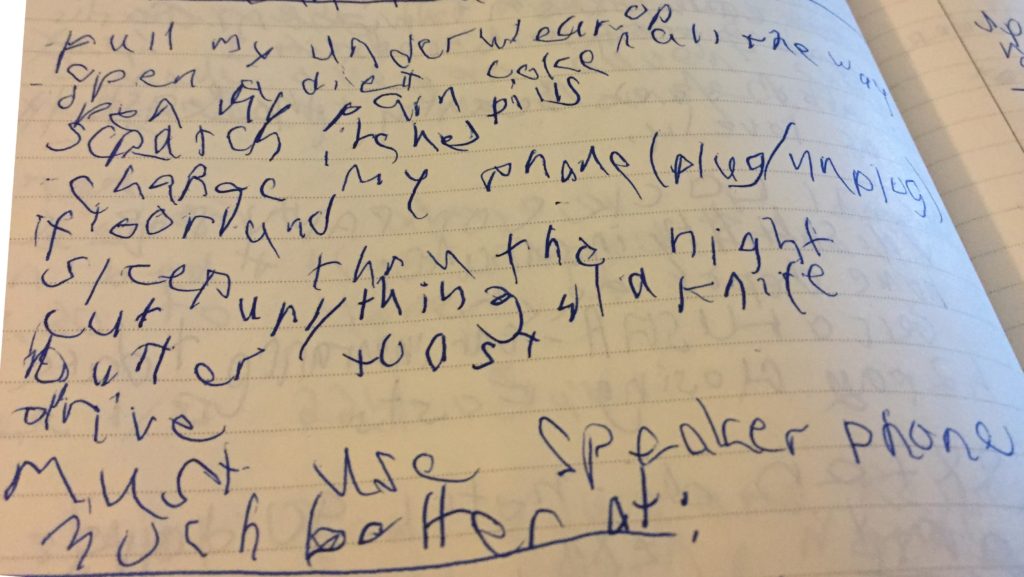 - pull my underwear up all the way
- open a diet coke
open my pain pills
scratch itches
- charge my phone (plug/unplug)
if
sleep thru the night
cut anything w/ a knife
butter toast
drive
Must use speaker phone
much better at: